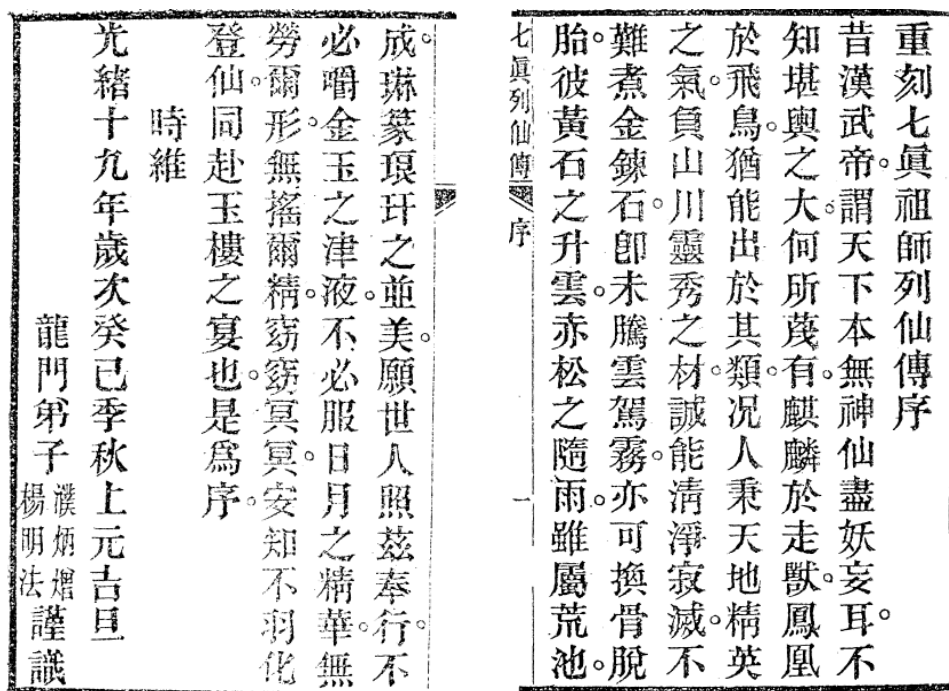 重刻七眞祖師列仙傳序
昔漢武帝。謂天下本無神仙盡妖妄耳。不
知堪輿之大。何所蔑有。麒麟於走獸。鳳凰
於飛鳥。猶能出於其類。况人秉天地精英
之氣。負山川靈秀之材。誠能淸淨寂滅。不
難煮金鍊石。卽未騰雲駕霧。亦可換骨脫
胎。彼黃石之升雲。赤松之隨雨。雖屬荒池。
七眞列仙傳 序 一
成。琳篆琅玕之並美。願世人照茲奉行。不
必嚼金玉之津液。不必服日月之精華。無
勞爾形。無搖爾精。窈窈冥冥。安知不羽化
登仙。同赴玉樓之宴也。是爲序。
時維
光緒十九年歲次癸已季秋上元吉旦
龍門弟子 濮炳熷 楊明法 謹識